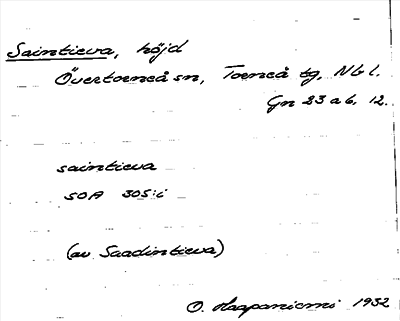 Saintieva, höjd
Övertorneå sn, Torneå tg, Nb l.
Gn 23 a b, 12.
saintieva
SOA 305:i
(av Saadintieva)
O. Haapaniemi 1932